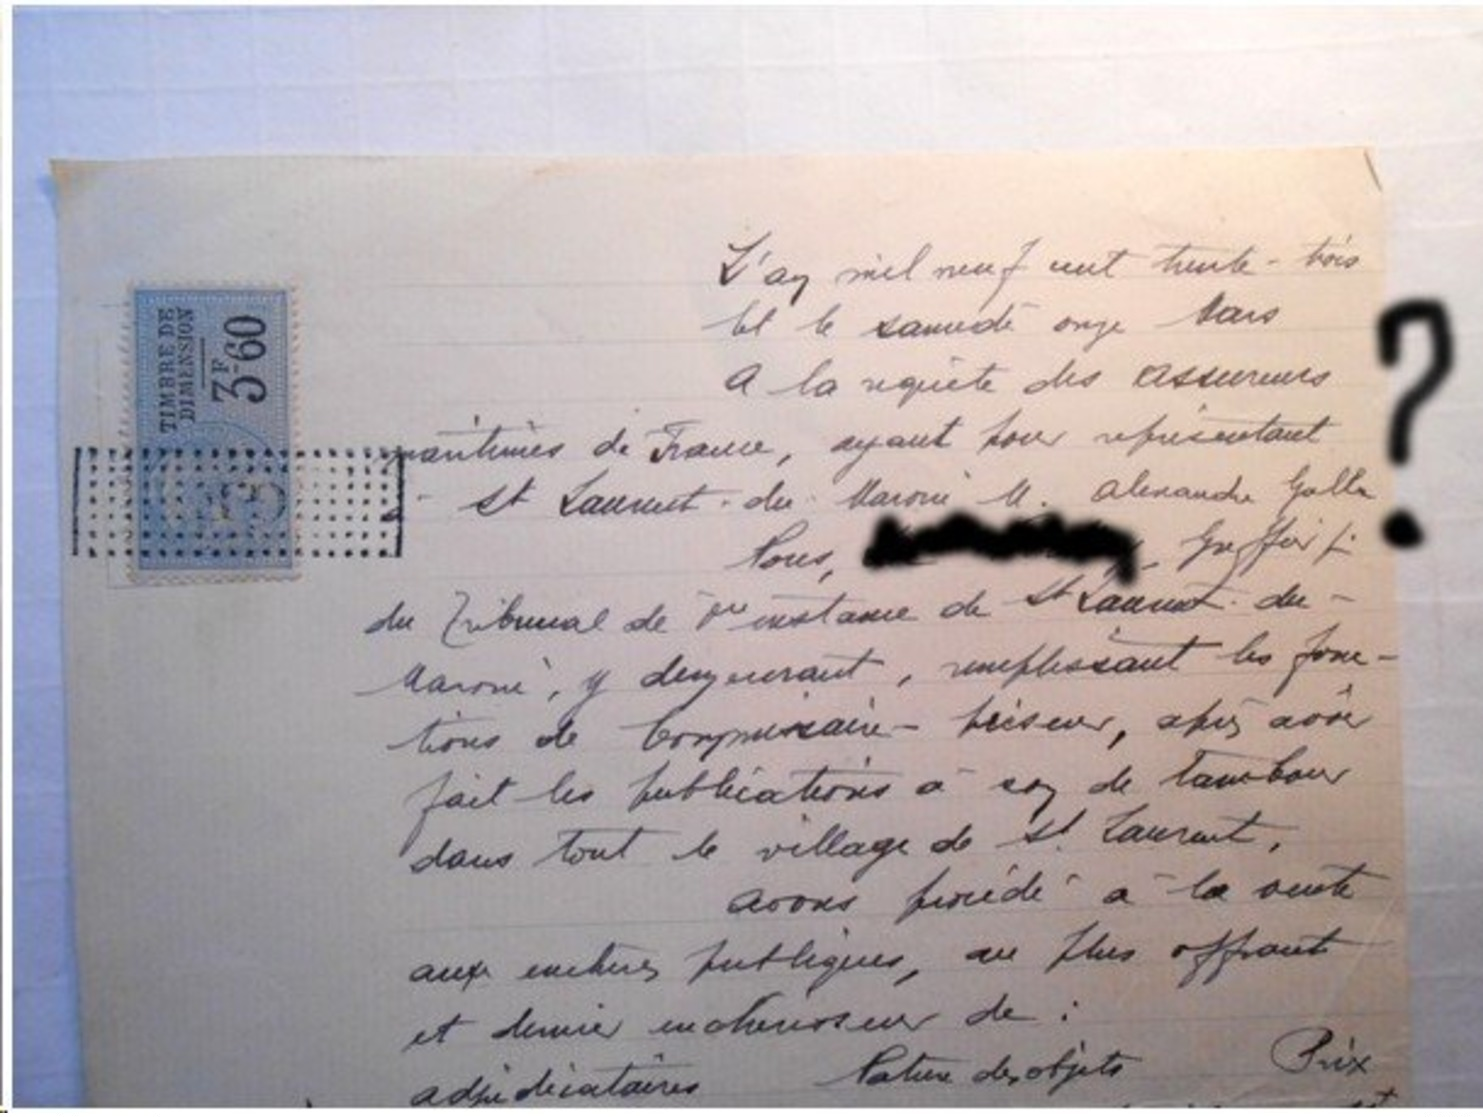 TIMBRE DE
DIMENSION
3F60
L'an mil neuf cent trente-trois
Et le samedi onze Mars
A la requête des Assureurs
maritimes de France, ayant pour représentant
à St Laurent-du-Maroni M. Alexandre Galla
Nous, Greffier p.i
du Tribunal de 1ère instance de St Laurent-du-
Maroni, y demeurant, remplissant les fonc-
tions de Commissaire-priseur, après avoir
fait les publications à son de tambour
dans tout le village de St Laurent,
avons procédé à la vente
aux enchères publiques, au plus offrant
et dernier enchérisseur de :
adjudicataires Nature des objets Prix
?